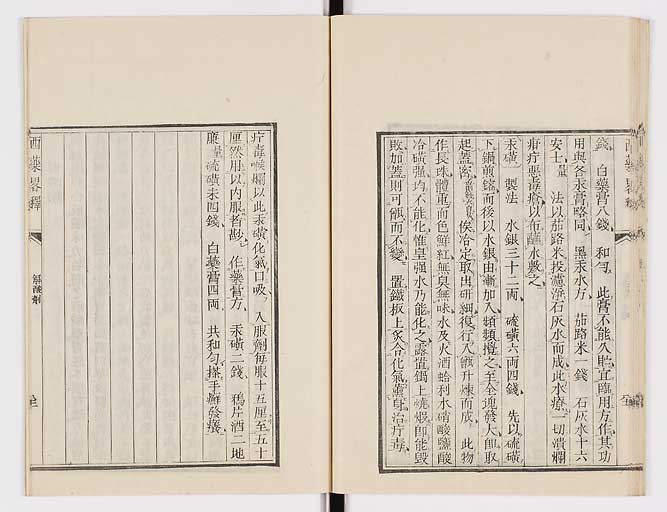 西藥畧釋
錢 白藥膏八錢 和勻 此膏不能久貯宜臨用方作其功
用與各汞膏略同 黑汞水方 茄路米一錢 石灰水十六
安士量 法以茄路米投濾淨石灰水而成此水療一切潰爛
疳疔惡毒瘡以布蘸水敷之
汞磺 製法 水銀三十二両 硫磺六両四錢 先以硫磺
下鍋煎鎔而後以水銀由漸加入頻頻攪之至全迎發大飽取
起蓋密 俟冷定取出研細復行入甑升煉而成 此物
作長珠體重而色鮮紅無臭無味水及火酒蛤利水硝酸鹽酸
冶磺強均不能化惟皇强水乃能化之露置鍋上燒煨即能毀
敗加蓋則可甑而不變 置鐵板上炙令化氣薰身治疔毒
疔毒喉爛以此汞磺化氣口吸 入服劑每服十五厘至五十
厘然用以內服者尠 作藥膏方 汞磺二錢 鴉片酒二地
廉量 硫磺末四錢 白藥膏四両 共和勻搽手癬發癢
西藥畧釋
解酸劑